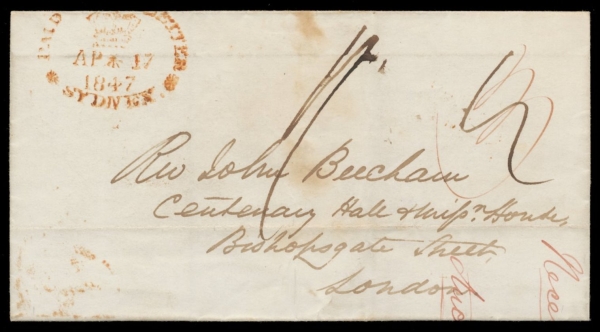 PAID LETTER
AP * 17
1847
* SYDNEY *
Rev John Beecham
Centenary Hall & Missn. House,
Bishopsgate Street
London